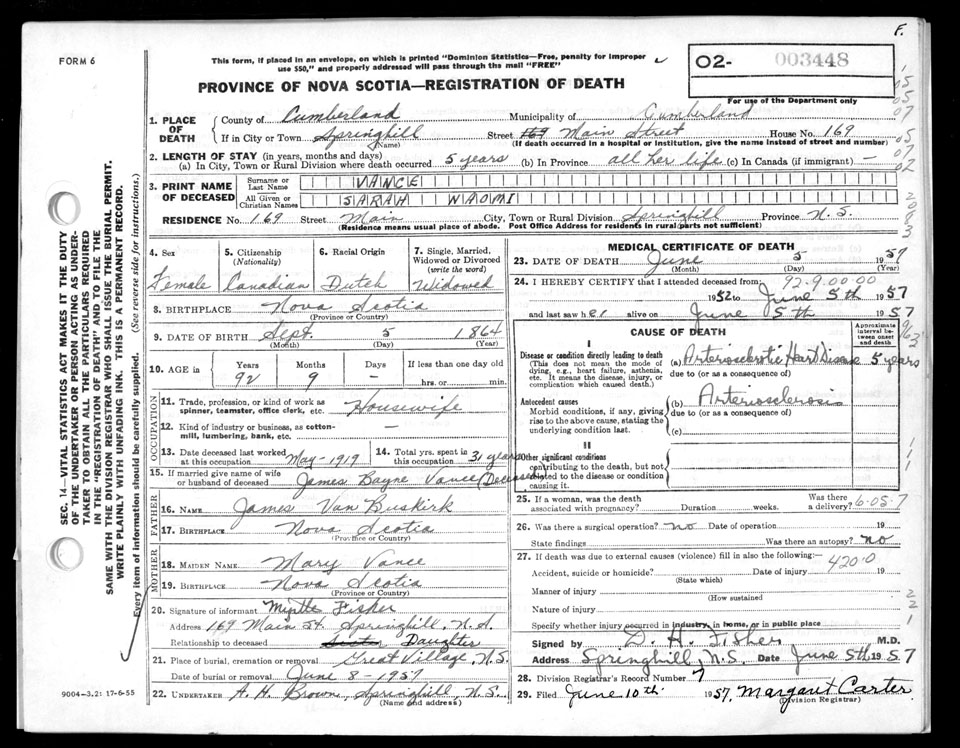 F.
FORM 6
This form, if placed in an envelope, on which is printed "Dominion Statistics—Free, penalty for improper
use $50," and properly addressed will pass through the mail "FREE"
02- 003448
For use of the Department only
PROVINCE OF NOVA SCOTIA—REGISTRATION OF DEATH
1. PLACE OF DEATH
County of Cumberland Municipality of Cumberland
If in City or Town Springhill Street 169 Main Street House No. 169
(Name) (If death occurred in a hospital or institution, give the name instead of street and number)
2. LENGTH OF STAY (in years, months and days)
(a) In City, Town or Rural Division where death occurred 5 years (b) In Province all her life (c) In Canada (if immigrant) —
3. PRINT NAME OF DECEASED
Surname or Last Name VANCE
All Given or Christian Names SARAH WAOMI
RESIDENCE No. 169 Street Main City, Town or Rural Division Springhill Province N.S.
(Residence means usual place of abode. Post Office Address for residents in rural parts not sufficient)
4. Sex Female
5. Citizenship (Nationality) Canadian
6. Racial Origin Dutch
7. Single, Married, Widowed or Divorced (write the word) Widowed
8. BIRTHPLACE Nova Scotia
(Province or Country)
9. DATE OF BIRTH Sept. 5 1864
(Month) (Day) (Year)
10. AGE in Years 92 Months 9 Days — If less than one day old
hrs. or min.
OCCUPATION
11. Trade, profession, or kind of work as spinner, teamster, office clerk, etc. Housewife
12. Kind of industry or business, as cotton-mill, lumbering, bank, etc. —
13. Date deceased last worked at this occupation May-1919
14. Total yrs. spent in this occupation 31 years
15. If married give name of wife or husband of deceased James Bayne Vance (Deceased)
FATHER
16. NAME James Van Buskirk
17. BIRTHPLACE Nova Scotia
(Province or Country)
MOTHER
18. MAIDEN NAME Mary Vance
19. BIRTHPLACE Nova Scotia
(Province or Country)
20. Signature of informant Myrtle Fisher
Address 169 Main St. Springhill, N.S.
Relationship to deceased Daughter
21. Place of burial, cremation or removal Great Village, N.S.
Date of burial or removal June 8-1957
22. UNDERTAKER A. H. Brown, Springhill, N.S.
(Name and address)
MEDICAL CERTIFICATE OF DEATH
23. DATE OF DEATH June 5 1957
(Month) (Day) (Year)
24. I HEREBY CERTIFY that I attended deceased from: 92-9.00.00
1952 to June 5th 1957
and last saw her alive on June 5th 1957
CAUSE OF DEATH
Approximate interval between onset and death
I
Disease or condition directly leading to death
(This does not mean the mode of dying, e.g., heart failure, asthenia, etc. It means the disease, injury, or complication which caused death.)
(a) Arteriosclerotic Heart Disease 5 years
due to (or as a consequence of)
Antecedent causes
Morbid conditions, if any, giving rise to the above cause, stating the underlying condition last.
(b) Arteriosclerosis
due to (or as a consequence of)
(c)
II
Other significant conditions
contributing to the death, but not related to the disease or condition causing it.
25. If a woman, was the death associated with pregnancy? Duration weeks. Was there a delivery? 6.05.7
26. Was there a surgical operation? no Date of operation 19
State findings Was there an autopsy? no
27. If death was due to external causes (violence) fill in also the following:— 420.0
Accident, suicide or homicide? Date of injury 19
(State which)
Manner of injury
(How sustained
Nature of injury
Specify whether injury occurred in industry, in home, or in public place
Signed by D. H. Fisher M.D.
Address Springhill, N.S. Date June 5th 1957
28. Division Registrar's Record Number 7
29. Filed June 10th 1957. Margaret Carter
(Division Registrar)
SEC. 14—VITAL STATISTICS ACT MAKES IT THE DUTY
OF THE UNDERTAKER OR PERSON ACTING AS UNDER-
TAKER TO OBTAIN ALL THE PARTICULARS REQUIRED
IN THE "REGISTRATION OF DEATH" AND TO FILE THE
SAME WITH THE DIVISION REGISTRAR WHO SHALL ISSUE THE BURIAL PERMIT.
WRITE PLAINLY WITH UNFADING INK. THIS IS A PERMANENT RECORD.
Every item of information should be carefully supplied. (See reverse side for instructions.)
9004-3.21 17-6-55